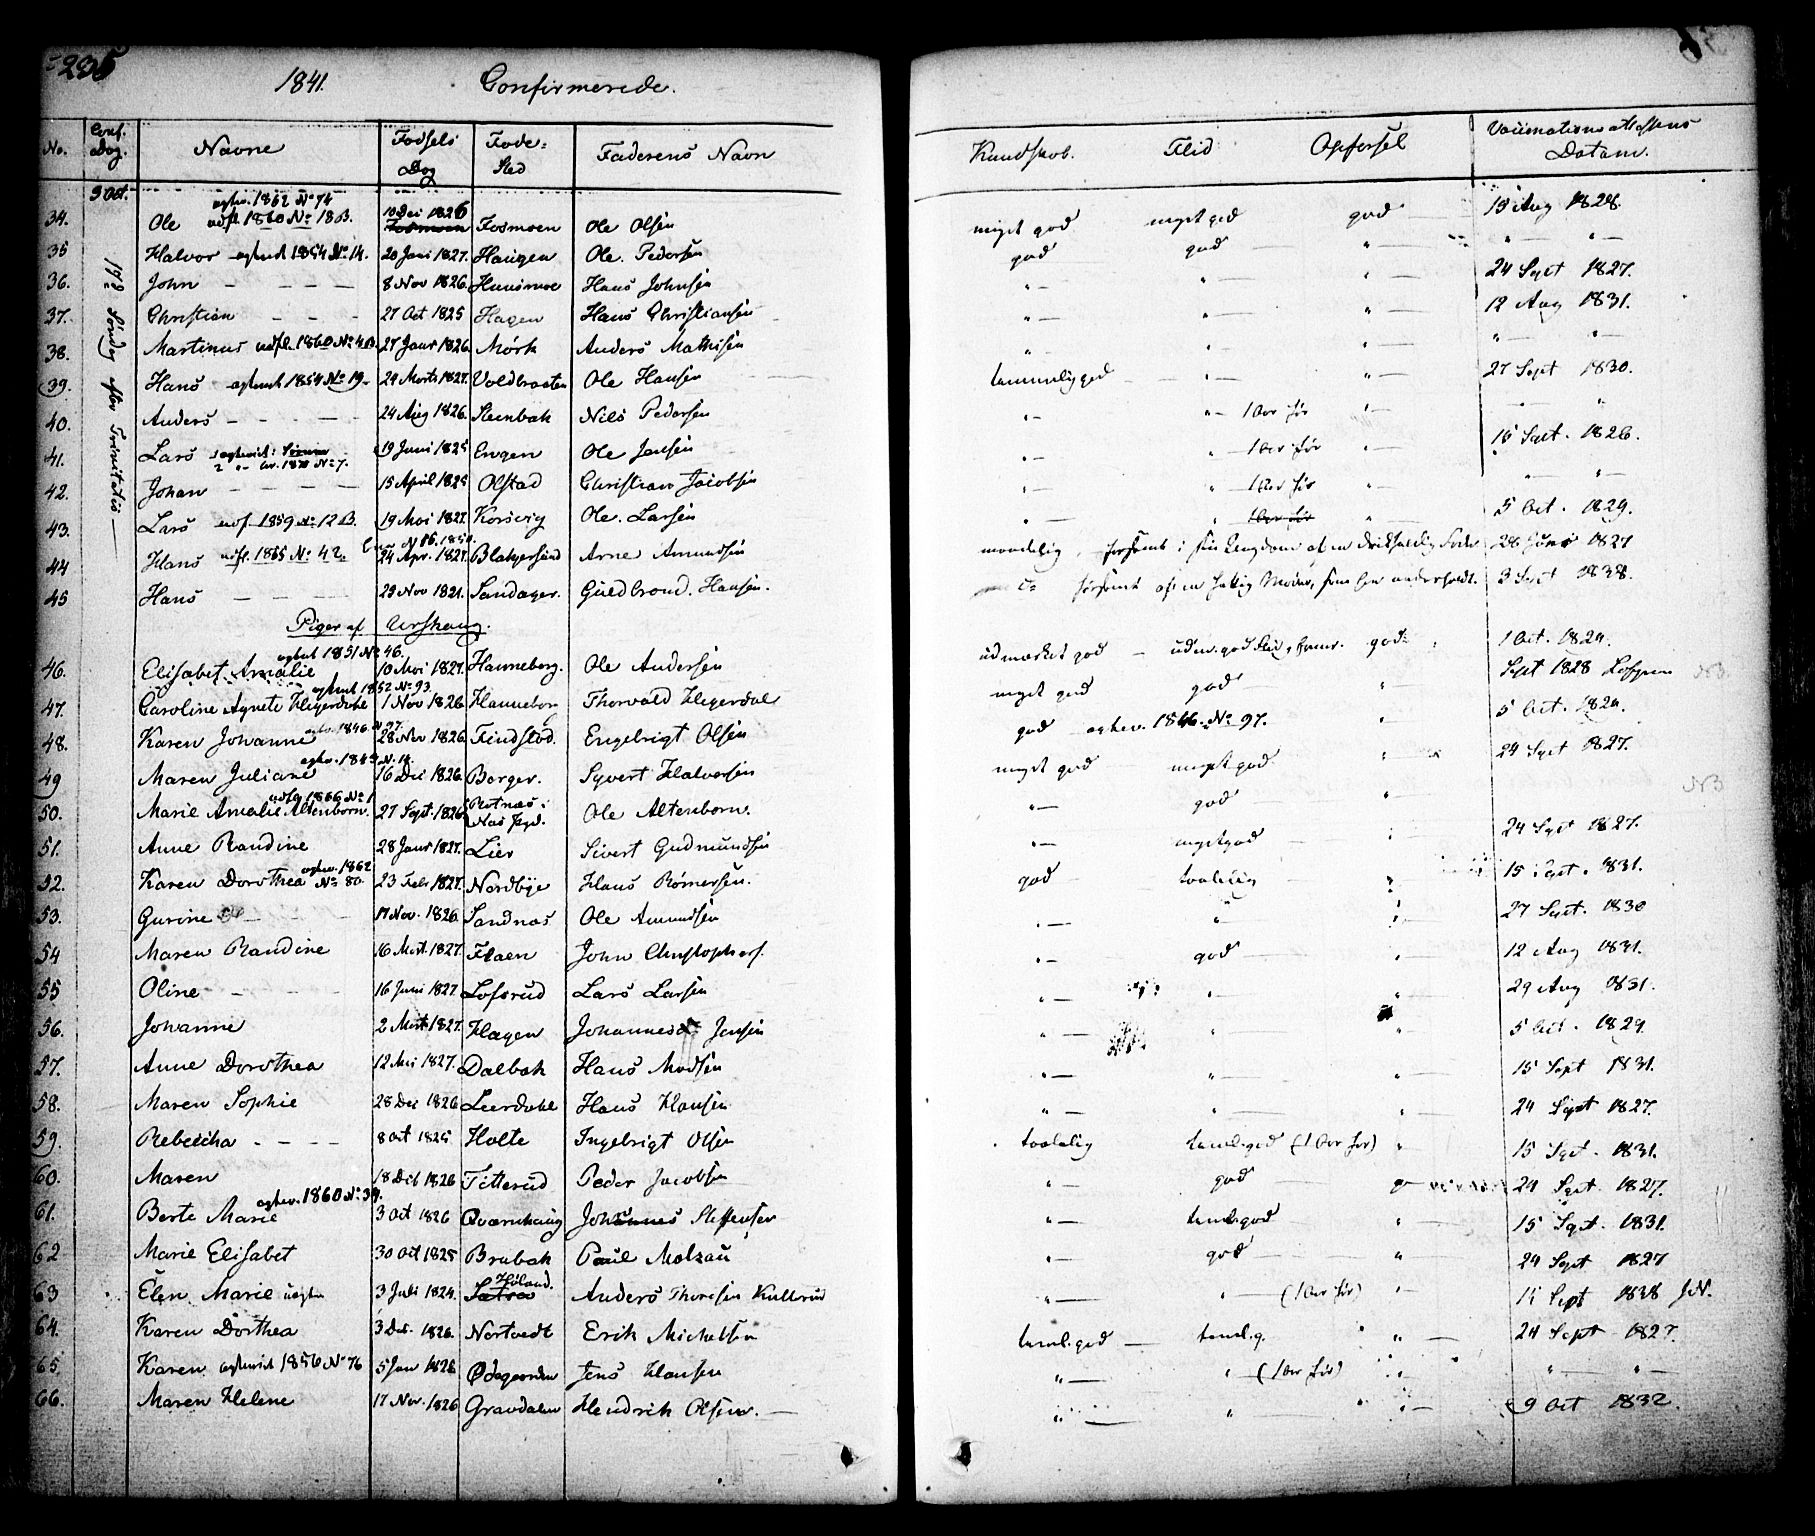 235
1841. Confirmerede.
No. Conf. Dag. Navne Fødsels Dag Føde-Sted Faderens Navn Kundskab. Flid Opførsel Vaccinations attestens Datum.
3 Oct. 17de Søndag efter Trinitatis
34. Ole aghev. 1862 No 74 udfl. 1860 No 18B. 10 Dec 1826 Fosmoen Ole Olsen meget god meget god god 19 Aug 1828
35 Halvor aghevet 1854 No 14. 20 Juni 1827. Haugen Ole Pedersen god god " " "
36. John 8 Nov 1826. Huusmoe Hans Johnsen " " " 24 Sept 1827.
37. Christian 27 Oct 1825 Hagen Hans Christiansen " " " 12 Aug 1831.
38. Martinus udfl. 1860 No 4B. 27 Janr 1826. Mørk Anders Mathisen " " " " "
39. Hans aghevet 1854 No 19. 29 Marts 1827. Voldbraaten Ole Hansen temmelig god " " 27 Sept 1830.
40. Anders 24 Aug 1826. Steenbak Nils Pedersen " " 1 Aar før " " "
41. Lars 19 Juni 1825 Engen Ole Jensen " " 1 Aar før " 15 Sept. 1826.
42. Johan 15 April 1825 Olstad Christian Jacobsen " " 1 Aar før " " "
43. Lars udf. 1859 No 12B. 19 Mai 1827. Korsvig Ole Larsen " " 1 Aar før " 5 Oct. 1829.
44 Hans udfl. 1865 No 42. 24 Apr. 1827. Blakjersund Arne Amundsen maadelig, forsømt i sin Ungdom af en drikfældig Fader 28 Juni 1827
45 Hans 29 Nov 1821. Sandager. Guldbrand Hansen. do forsømt af en fattig Moder, som han underholdt. 3 Sept 1838.
Piger af Urskoug.
46. Elisabet Amalie aghevt 1851 No 46. 10 Mai 1827. Hanneborg. Ole Andersen udmærket god udm. god Flid, frem. god 1 Oct. 1829.
47. Caroline Agnete Hegerdahl aghevt 1852 No 93. 1 Nov 1826 Hanneborg Thorvald Hegerdal meget god god " Sept 1828 Lofgren NB.
48. Karen Johanne aghev. 1846 No 97. 28 Nov 1826. Findstad. Engebrigt Olsen god aghev. 1846. No 97. " 5 Oct. 1829.
49 Maren Juliane aghev. 1849 No 14. 16 Dec 1826. Borger. Syvert Halvorsen meget god meget god " " 24 Sept 1827.
50. Marie Amalie Altenborn. udflg 1866 No 1 27 Sept. 1826. Ole Altenborn. " god " NB
51. Anne Randine 28 Janr 1827. Lier Sivert Gudmundsen " meget god " 24 Sept 1827.
52. Karen Dorothea aghev. 1862 No 80. 23 Febr 1827. Nordbye Hans Rømersen. god taalelig " 15 Sept. 1831.
53. Gurine 17 Nov. 1826. Sandnæs Ole Amundsen " " " 27 Sept. 1830
54 Maren Randine 16 Mart. 1827. Flaen John Christophers. " god " 12 Aug 1831.
55 Oline 16 Juni 1827 Lofsrud Lars Larsen " " " 29 Aug 1831.
56. Johanne 2 Mart. 1827. Hagen Johannes Jensen " " " 5 Oct. 1829
57. Anne Dorothea 12 Mai 1827. Dalbak Hans Madsen " " " 15 Sept 1831.
58. Maren Sophie 28 Dec 1826 Leerdahl Hans Hansen " " " 24 Sept 1827.
59. Rebecka 8 Oct 1825 Holte Ingebrigt Olsen taalelig teml. god (1 Aar før) " 15 Sept. 1831.
60. Maren 18 Dec 1826 Titterud Peder Jacobsen " god " 24 Sept. 1827.
61. Berte Marie aghev. 1860 No 39. 3 Oct 1826 Qværnhaug Johannes Steffensen " teml. god " 15 Sept. 1831.
62 Marie Elisabet 30 Oct 1825 Brubak Paul Molzau " god " 24 Sept 1827
63 Elen Marie uægte 3 Juli 1824. Sætra Høland. Anders Thoresen Kultrud " " (1 Aar før) " 11 Sept 1838
64. Karen Dorthea 3 Dec. 1826. Nortvedt Erik Michelsen teml. god teml. g. " 24 Sept 1827.
65. Karen aghevet 1856 No 76 5 Jan 1826 Ødegaarden Jens Hansen " " (1 Aar før) " " "
66. Maren Helene 17 Nov. 1826 Gravdalen Hendrik Olsen. " " " 9 Oct 1832.